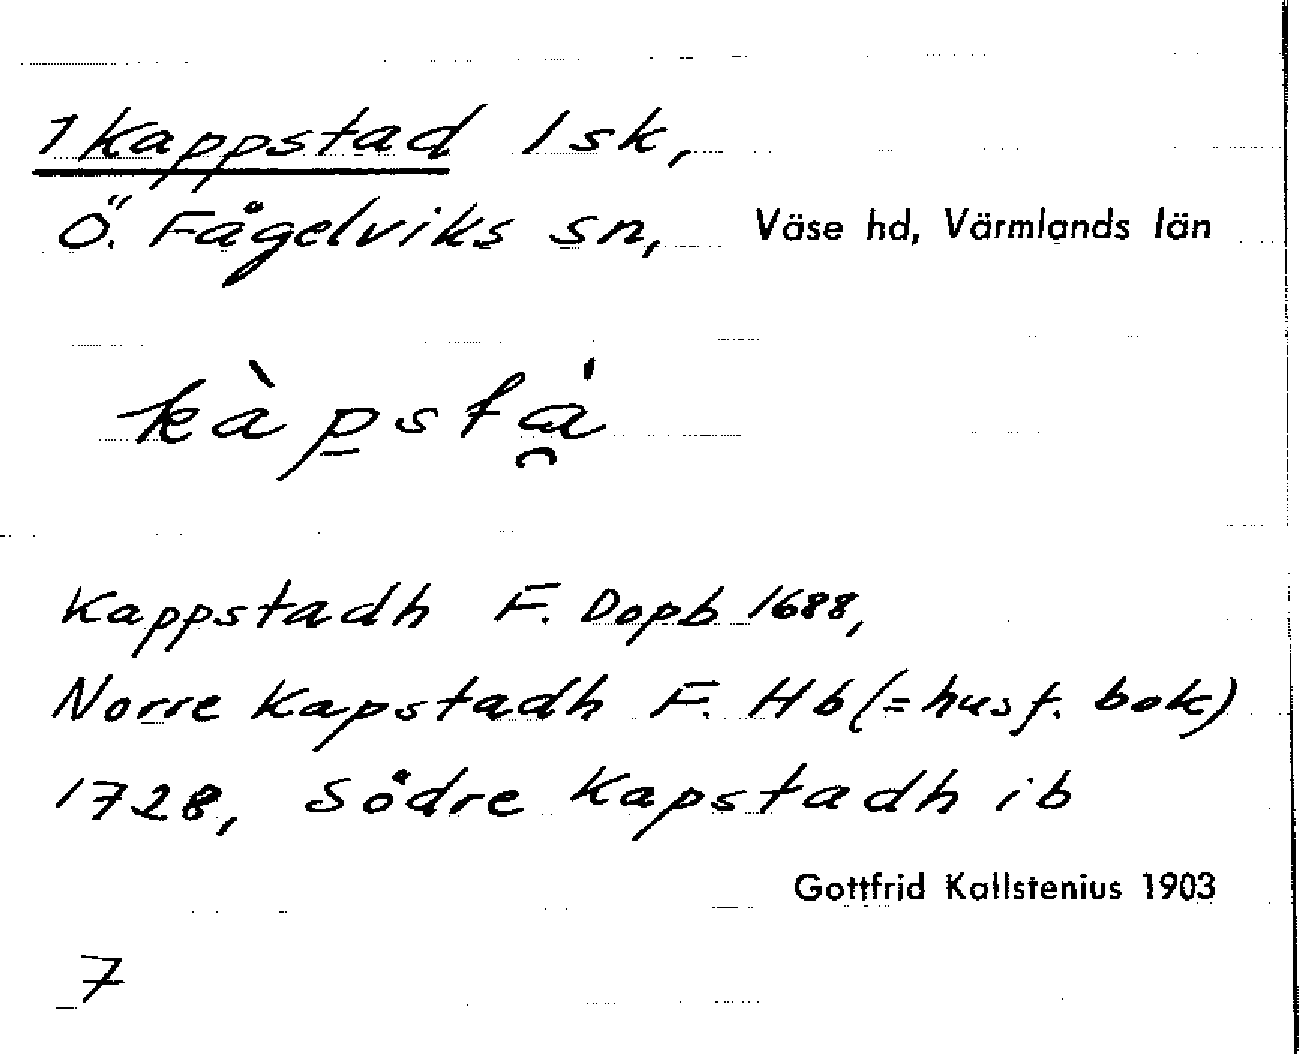 1 Kappstad 1 sk,
Ö. Fågelviks sn, Väse hd, Värmlands län
kàpstá̯
Kappstadh F. Dopb 1688,
Norre Kapstadh F. Hb (= husf. bok)
1728, Södre Kapstadh ib
Gottfrid Kallstenius 1903
7